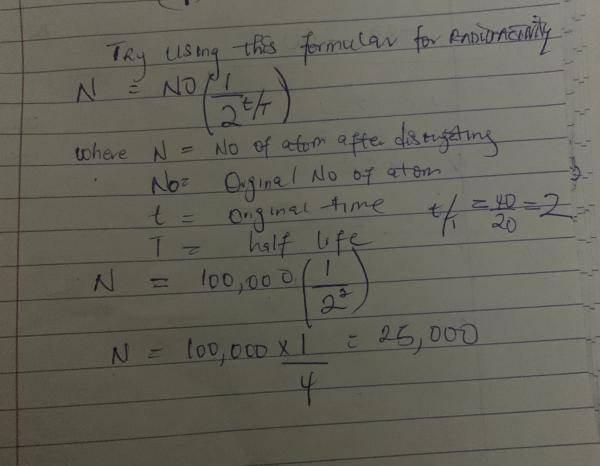 Try using this formular for RADIOACTIVITY
N = NO(1/2^t/T)
where N = No of atom after disintegrating
No = Orginal No of atom
t = original time t/T = 40/20 = 2
T = half life
N = 100,000 (1/2^2)
N = 100,000 x 1/4 = 25,000